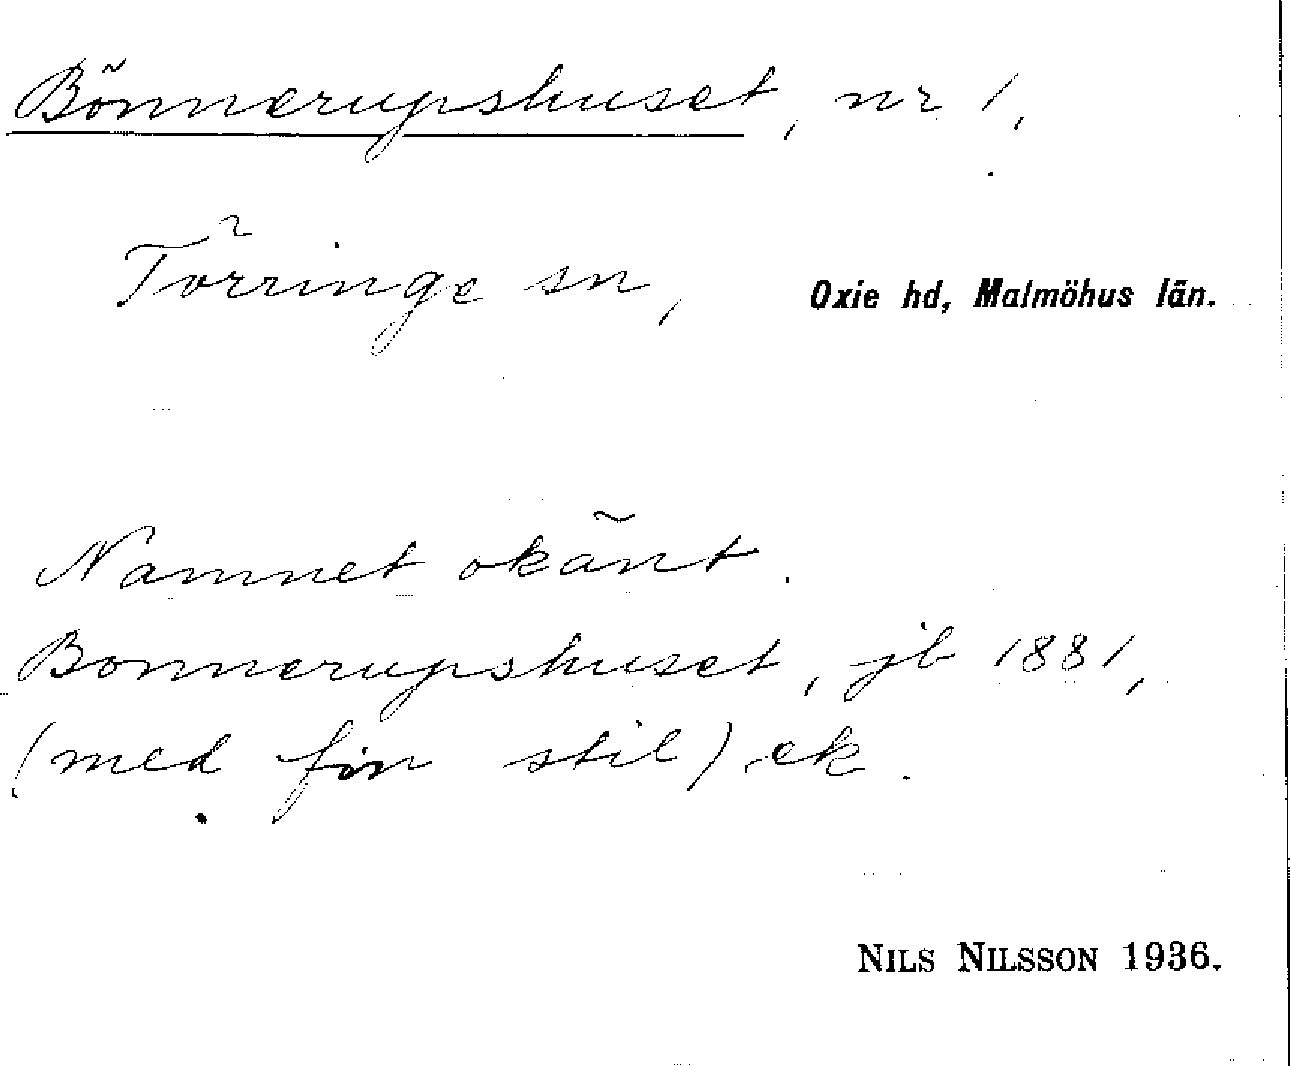 Bönnerupshuset, nr 1,
Törringe sn, Oxie hd, Malmöhus län.
Namnet okänt.
Bonnerupshuset, jb 1881,
(med fin stil) ek.
NILS NILSSON 1936.